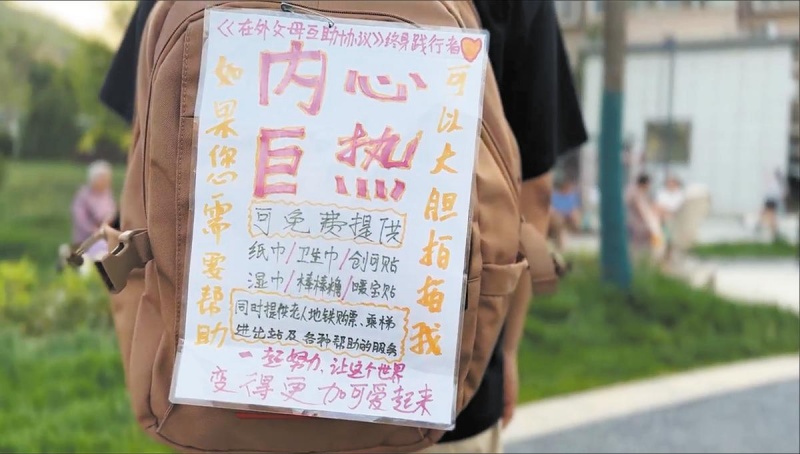 《《在外父母互助协议》终身践行者
内心
巨热
如果您需要帮助
可以大胆拍拍我
可免费提供
纸巾/卫生巾/创可贴
湿巾/棒棒糖/暖宝贴
同时提供老人地铁购票、乘梯
进出站及各种帮助的服务
一起努力、让这个世界
变得更加可爱起来